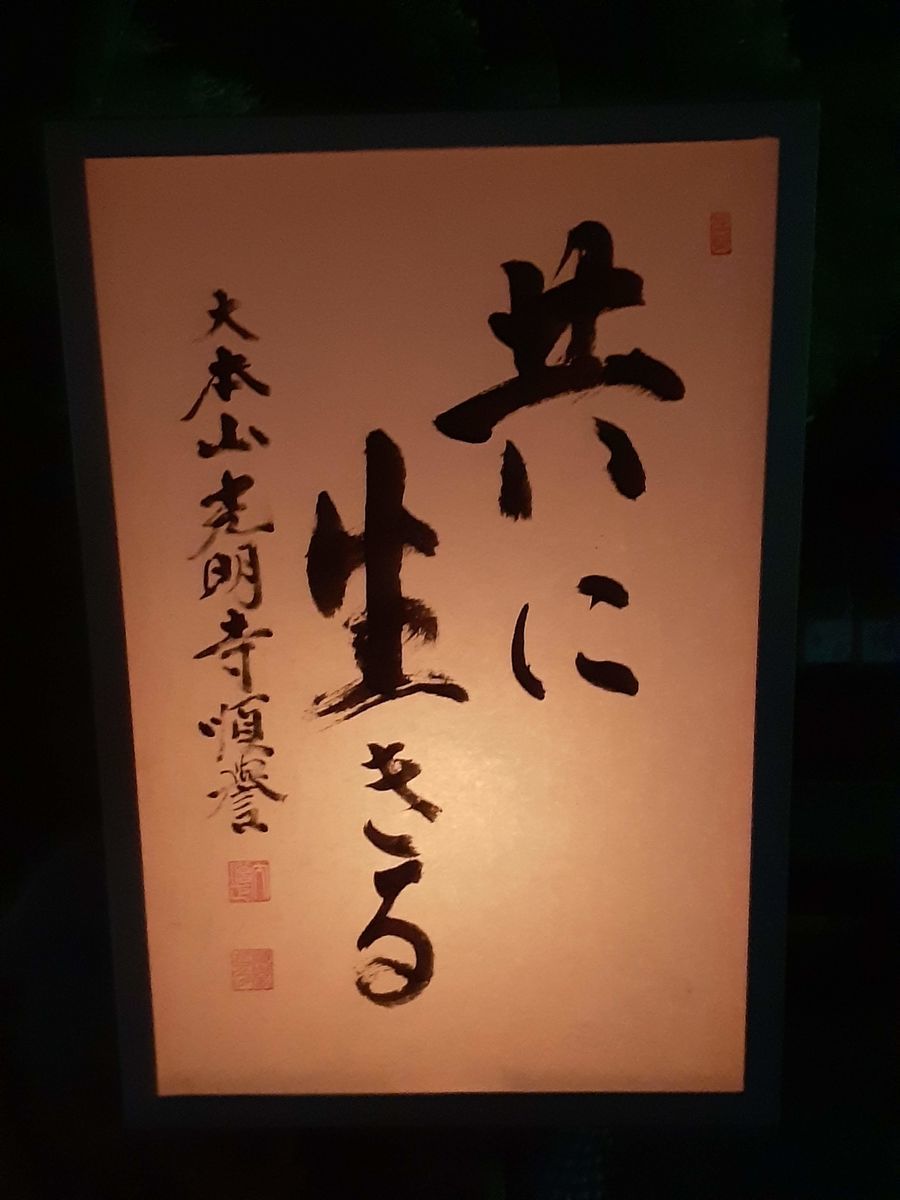 共に
生きる
大本山光明寺順譽